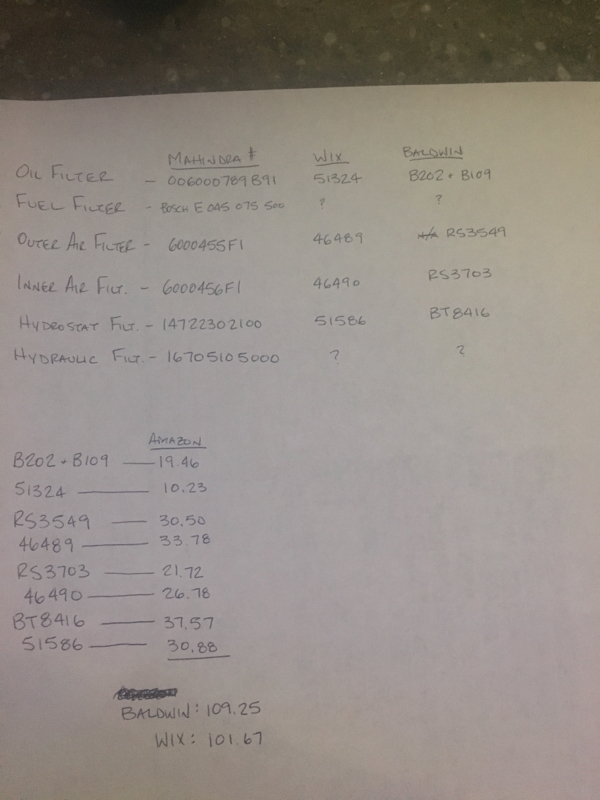 MAHINDRA # WIX BALDWIN
OIL FILTER - 006000789B91 51324 B202 + B109
FUEL FILTER - BOSCH E 045 075 500 ? ?
OUTER AIR FILTER - 6000455F1 46489 N/A RS3549
INNER AIR FILT. - 6000456F1 46490 RS3703
HYDROSTAT FILT. - 14722302100 51586 BT8416
HYDRAULIC FILT. - 16705105000 ? ?
AMAZON
B202 + B109 — 19.46
51324 — 10.23
RS3549 — 30.50
46489 — 33.78
RS3703 — 21.72
46490 — 26.78
BT8416 — 37.57
51586 — 30.88
BALDWIN: 109.25
WIX: 101.67